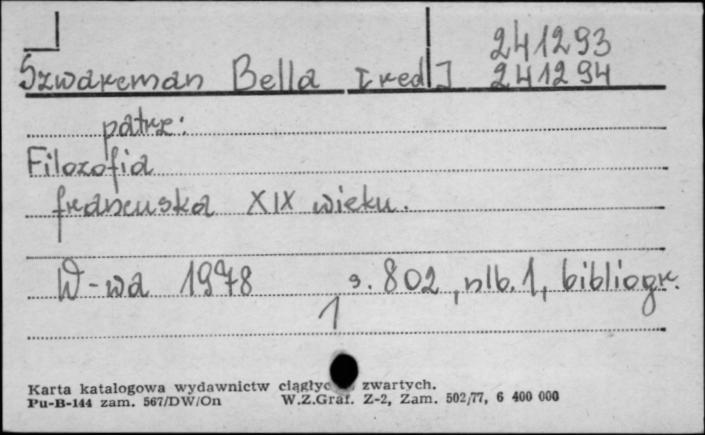 241293
Szwarcman Bella [red] 241294
patrz:
Filozofia
francuska XIX wieku.
W-wa 1978 s. 802, nlb. 1, bibliogr.
1
Karta katalogowa wydawnictw ciągłyc zwartych.
Pu-B-144 zam. 567/DW/On W.Z.Graf. Z-2, Zam. 502/77, 6 400 000